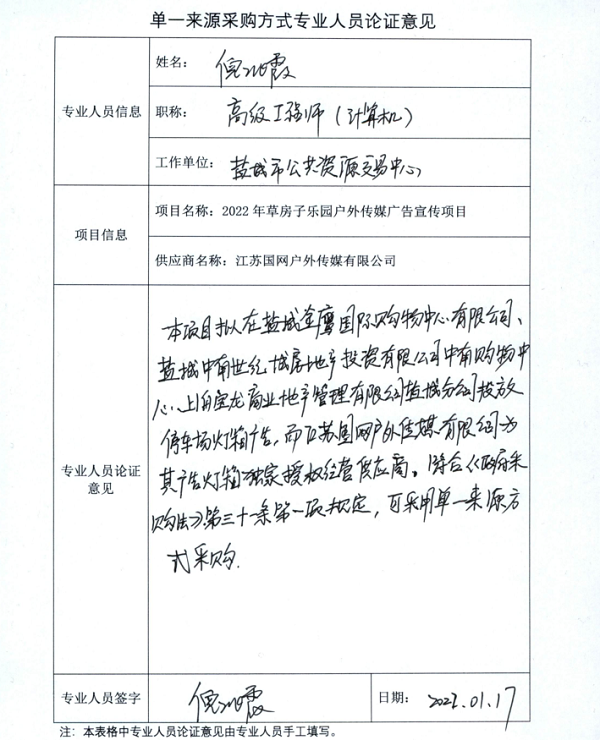 单一来源采购方式专业人员论证意见
专业人员信息
姓名：倪霞
职称：高级工程师（计算机）
工作单位：盐城市公共资源交易中心
项目信息
项目名称：2022年草房子乐园户外传媒广告宣传项目
供应商名称：江苏国网户外传媒有限公司
专业人员论证意见
本项目拟在盐城金鹰国际购物中心有限公司、
盐城中南世纪城房地产投资有限公司中南购物中
心、上海宝龙商业地产管理有限公司盐城分公司投放
停车场灯箱广告，而江苏国网户外传媒有限公司为
其广告灯箱独家授权经营供应商。符合《政府采
购法》第三十一条第一项规定，可采用单一来源方
式采购.
专业人员签字
倪霞
日期：2022.01.17
注：本表格中专业人员论证意见由专业人员手工填写。